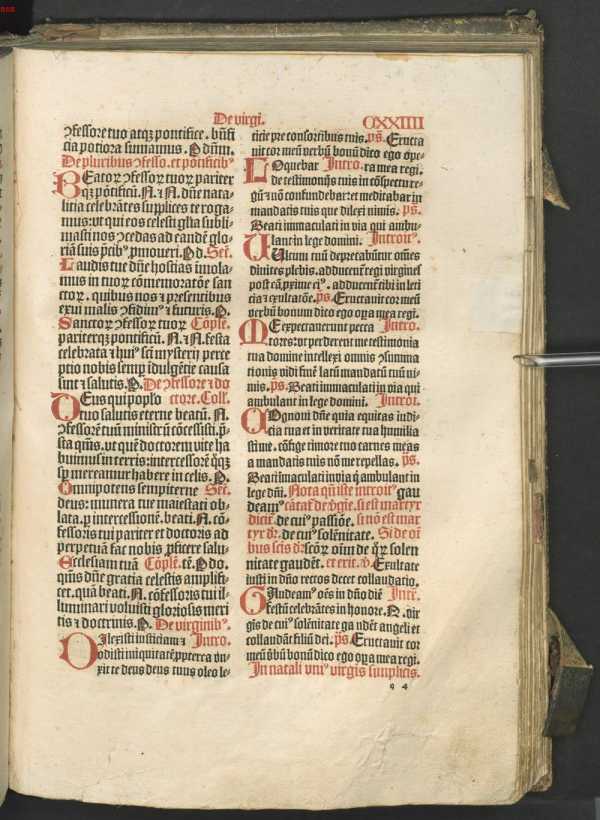 De virgi. CXXIIII
ꝯfessore tuo atqꝫ pontifice. bn̄fi
cia potiora sumamus. P dn̄m.
De pluribus ꝯfesso. et pōtificibꝰ
BEatoꝝ ꝯfessoꝝ tuoꝝ pariter
qꝫ pōtificū. N. ⁊ N. dn̄e nata-
litia celebrātes supplices te roga-
mus: vt qui eos celesti gl̄ia subli
masti nos ꝯcedas ad eandē glo-
riā suis p̄cibꝰ ꝓmoueri. P d. Sec̄.
Laudis tue dn̄e hostias imola-
mus in tuoꝝ cōmemoratōe san
ctoꝝ. quibus nos ⁊ presentibus
exui malis ꝯfidimꝰ ⁊ futuris. P.
Sanctoꝝ ꝯfessoꝝ tuoꝝ Cōple.
pariterqꝫ pontificū. N. ⁊ N. festa
celebrata ⁊ huiꝰ sc̄i mysterij perce
ptio nobis semꝑ īdulgētie causa
sint ⁊ salutis. P. De ꝯfessore ⁊ do
DEus qui poplo ctore. Coll̄.
tuo salutis eterne beatū. N.
ꝯfessorē tuū ministrū cōcessisti. p̄-
sta qm̄s. vt quē doctorem vite ha
buimus in terris: intercessorē qꝫ
sꝑ mereamur habere in celis. P.
Omnipotens sempiterne Sec̄.
deus: munera tue maiestati ob-
lata. ꝑ intercessionē. beati. N. cō-
fessoris tui pariter et doctoris ad
perpetuā fac nobis ꝓficere salu-
Ecclesiam tuā Cōple. tē. P do.
qm̄s dn̄e gratia celestis amplifi-
cet. quā beati. N. cōfessoris tui il-
luminari voluisti gloriosis meri
tis ⁊ doctrinis. P. De virginibꝰ.
DIlexisti iustitiam ⁊ Intro.
odisti iniquitatē ꝓpterea vn-
xit te deus deus tuus oleo le-
ticie pre consortibus tuis. ps̄. Eructa
uit cor meū verbū bonū dico ego oꝑe-
LOquebar Intro. ra mea regi.
de testimonijs tuis in cōspectu re-
gū ⁊ nō confundebar: et meditabar in
mandatis tuis que dilexi nimis. ps̄.
Beati immaculati in via qui ambu-
lant in lege domini. Introitꝰ.
VUltum tuū deprecabūtur om̄es
diuites plebis. adducent regi virgines
post eā. ꝓxime eiꝰ. adducent tibi in leti
cia ⁊ exultatōe. ps̄. Eructauit cor meū
verbū bonum dico ego oꝑa mea regi.
ME expectauerunt pecca Intro.
tores: vt perderent me testimonia
tua domine intellexi omnis ꝯsumma
tionis vidi finē latū mandatū tuū ni-
mis. ps̄. Beati immaculati in via qui
ambulant in lege domini. Introi.
COgnoui dn̄e quia equitas iudi-
cia tua et in veritate tua humilia
sti me. cōfige timore tuo carnes meas
a mandatis tuis nō me repellas. ps̄.
Beati immaculati in via q̄ ambulant in
lege dn̄i. Nota qn̄ iste introitꝰ gau
deamꝰ cātaꝭ de ꝟgie. si est martyr
dicit̄. de cuiꝰ passiōe. si nō est mar
tyr dr̄. de cuiꝰ solēnitate. Si de oī
bus scis dr̄. scōꝝ oīm de q̄ꝝ solen
nitate gaudēt. et erit ꝟ. Exultate
iusti in dn̄o rectos decet collaudatio.
GAudeamꝰ oēs in dn̄o diē Intr.
festū celebrātes in honore. N. vir
gis de cuiꝰ solēnitate gaudēt angeli et
collaudāt filiū dei. ps̄. Eructauit cor
meū ꝟbū bonū dico ego oꝑa mea regi.
In natali vniꝰ virgis simplicis.
q 4